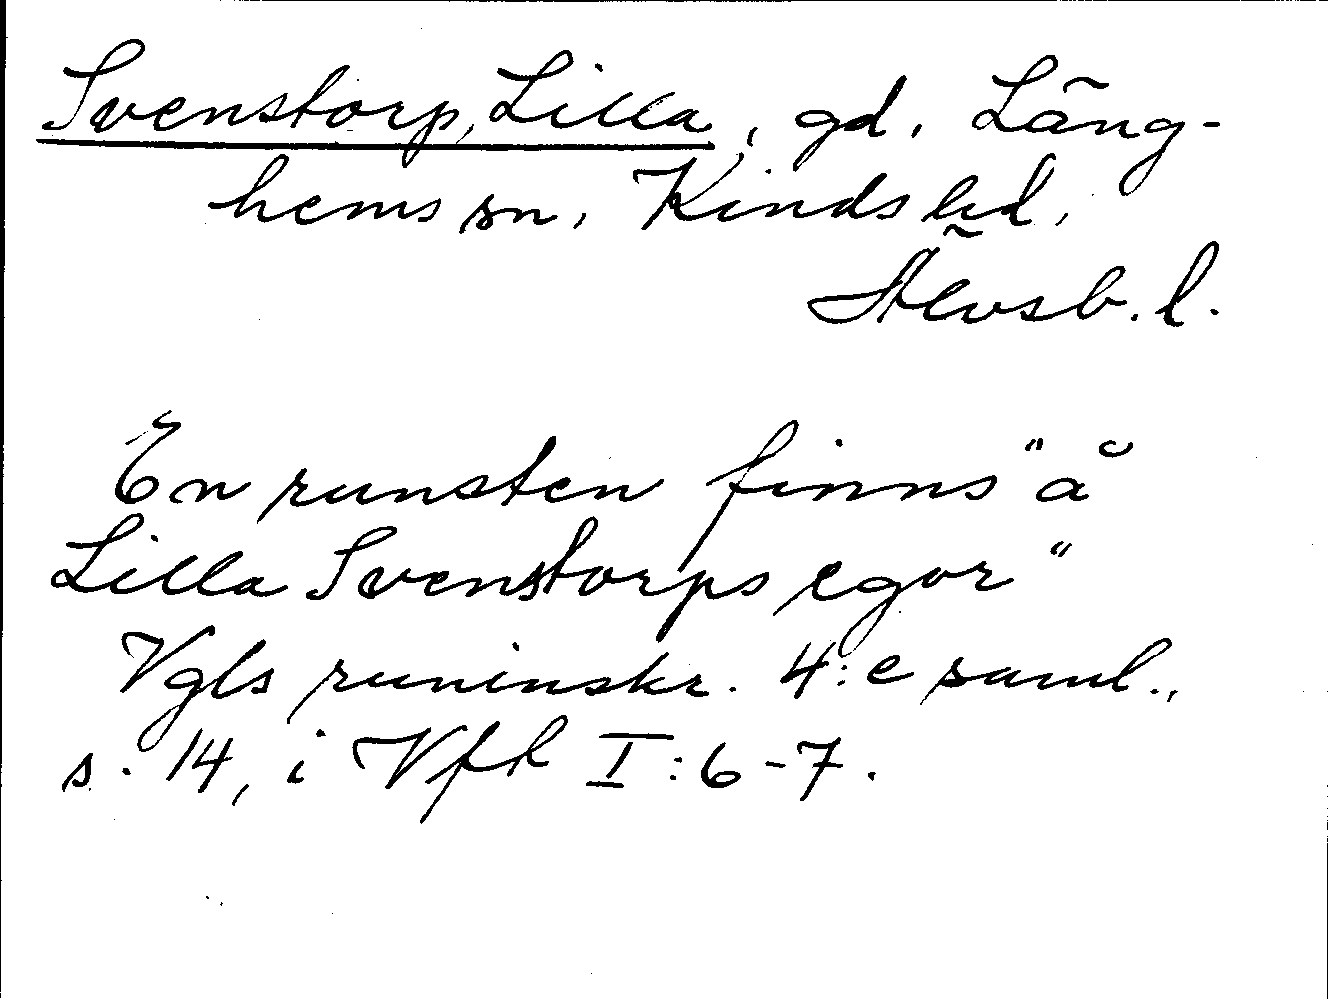 Svenstorp, Lilla, gd. Läng-
hems sn, Kinds hd,
Älvsb. l.
En runsten finns "å
Lilla Svenstorps egor"
Vgls runinskr. 4:e saml.,
s. 14, i Vfh I:6-7.